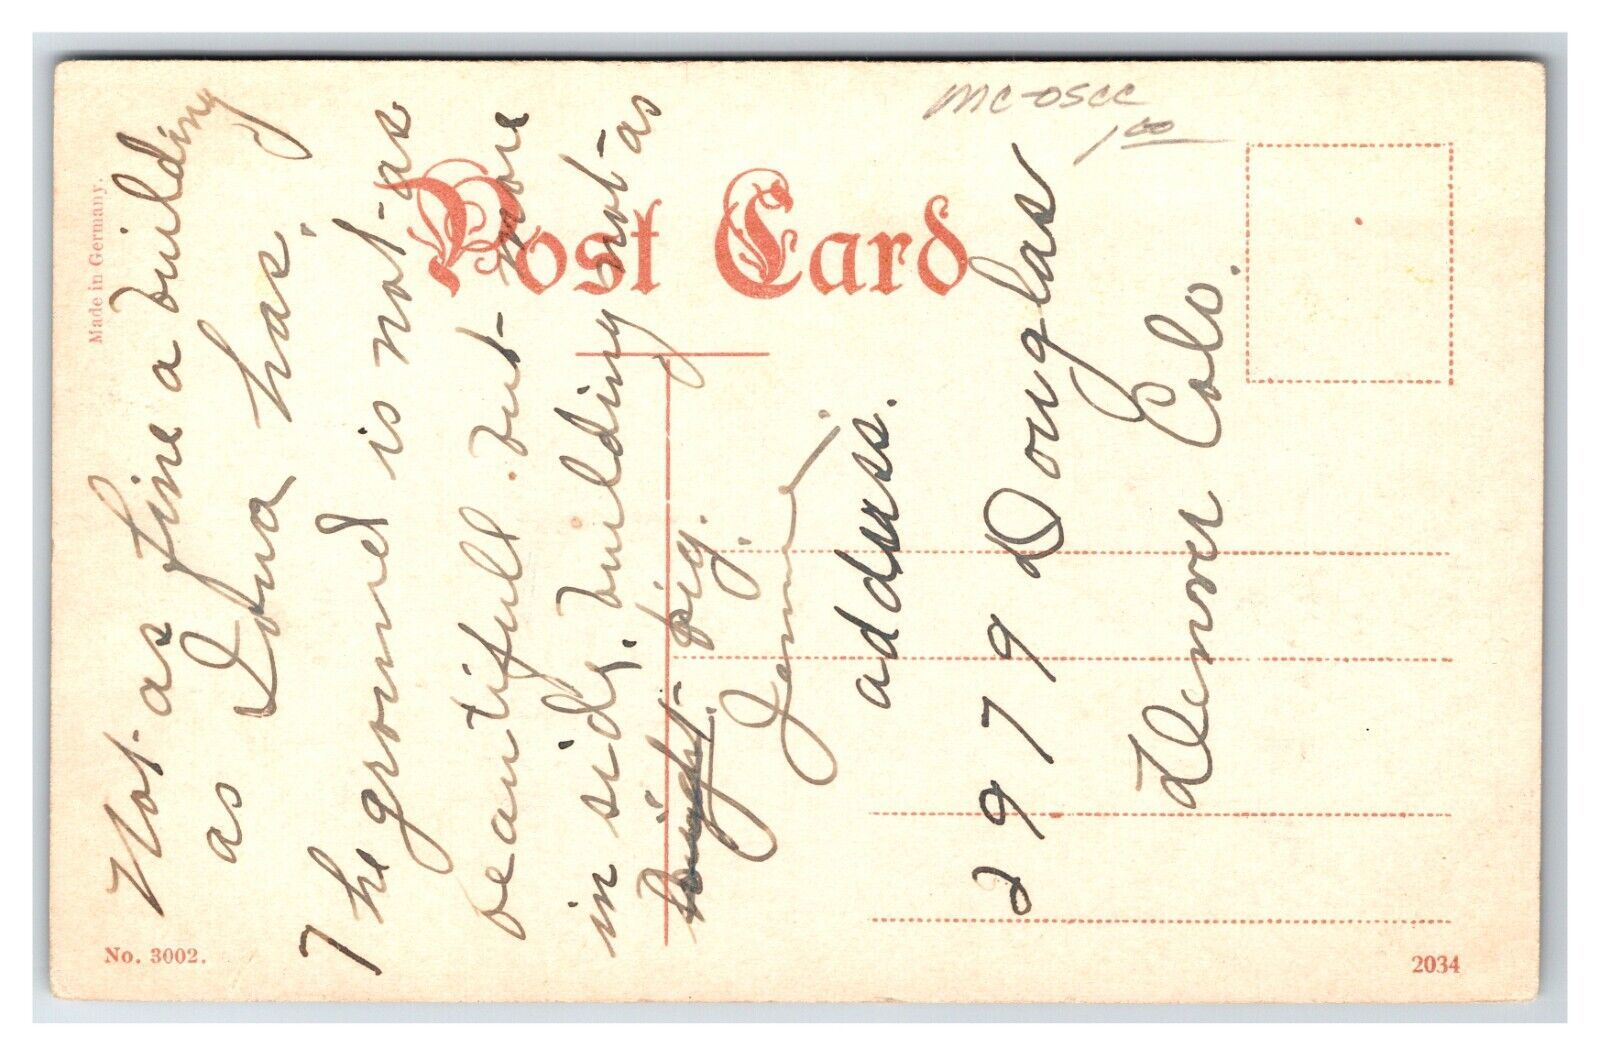 Not as fine a building
as Iowa has.
The ground is not as
beautifull. but more
in side. building not as
big.
Jennie.
address.
2979 Douglas
Denver Colo.
Post Card
Made in Germany.
No. 3002.
2034
1 00